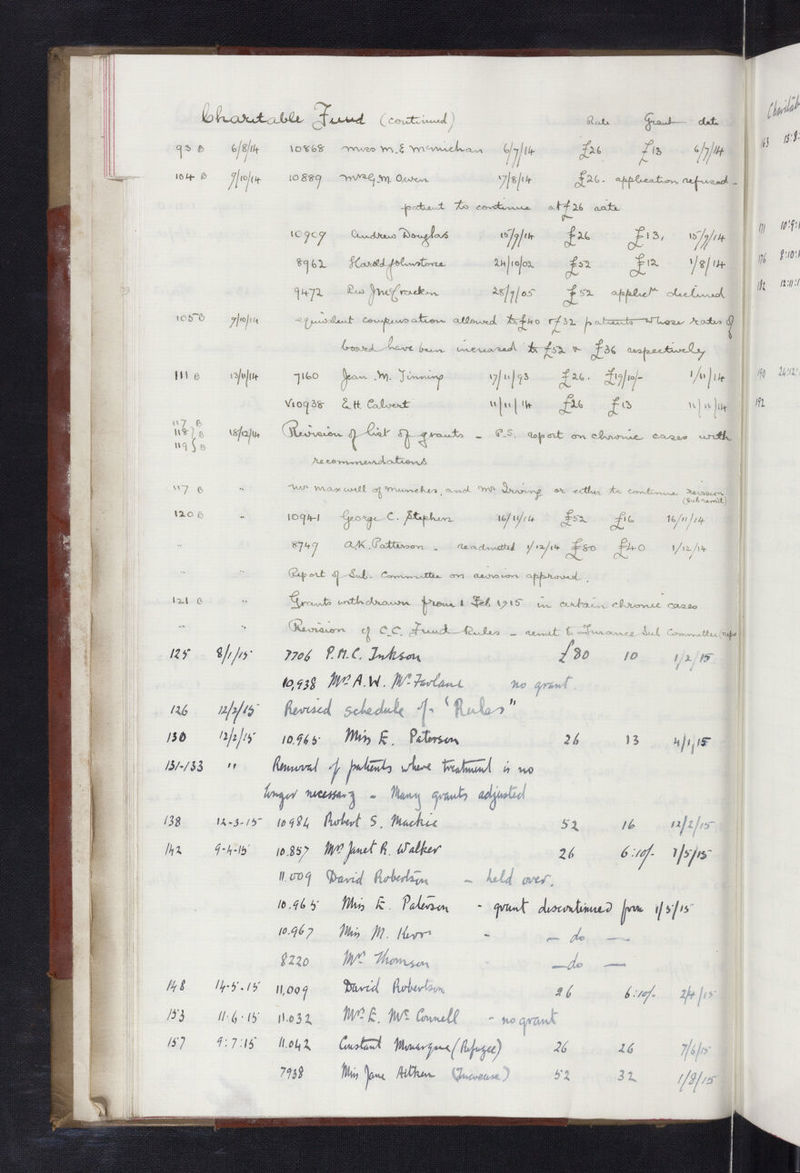 Charitable Fund (continued) Rate Grant date
93 B 6/8/14 10868 Miss M. E McMichan 6/7/14 £26 £13 6/7/14
104 B 9/10/14 10889 Mrs G. M. Owen 17/8/14 £26. application refused -
patient to continue at £26 rate
10909 Andrew Douglas 15/9/14 £26 £13, 15/9/14
8962 Harold Johnstone 24/10/02 £52 £12 1/8/14
9472 Rev Jno McCracken 28/9/05 £52 applictn declined
105 B 9/10/14 equivalent compensation allowed to £40 & £32 patients whose rates of
board have been increased to £52 & £36 respectively
111 B 13/11/14 7160 Jean M. Jinning 17/11/93 £26. £19/10/- 1/11/14
V10938 E. H. Calvert 11/11/14 £26 £13 11/11/14
117 B
118 B 18/12/14 Revision of list of grants - P.S. report on chronic cases with
119 B
recommendations
117 B " Mr Maxwell of Munches, and Mr Irving or either to continue revision
(Sub remit)
120 B " 10941 George C. Stephen 16/11/14 £52 £16 16/11/14
" " 8749 A. K. Patterson. readmitted 1/12/14 £80 £40 1/12/14
" " Report of Sub. Committee on revision approved.
121 B " Grants withdrawn from 1 Feb 1915 in certain chronic cases
" " Revision of C.C. Fund Rules - remit to Finance Sub Committee
125 8/1/15 7706 P. M. C. Inkson £80 10 1/2/15
10,938 Mrs A. W. McFarlane no grant
126 12/2/15 Revised schedule of "Rules"
130 12/2/15 10,965 Miss E. Paterson 26 13 4/1/15
131-133 " Removal of patients where treatment is no
longer necessary - Many grants adjusted
138 12-3-15 10984 Robert S. Mackie 52 16 12/2/15
142 9-4-15 10.857 Mrs Janet R. Walker 26 6:10/- 7/5/15
11.009 David Robertson - held over.
10.965 Miss E. Paterson - grant discontinued from 1/5/15
10.967 Miss M. Kerr - - do -
8220 Mrs Thomson " - do -
148 14-5-15 11,009 David Robertson 26 6:10/- 2/4/15
153 11-6-15 11.032 Mrs E. McConnell - no grant
157 9:7:15 11.042 Constant (Refugee) 26 26 7/6/15
7938 Miss Jane Aitken (Increase) 52 32 1/8/15